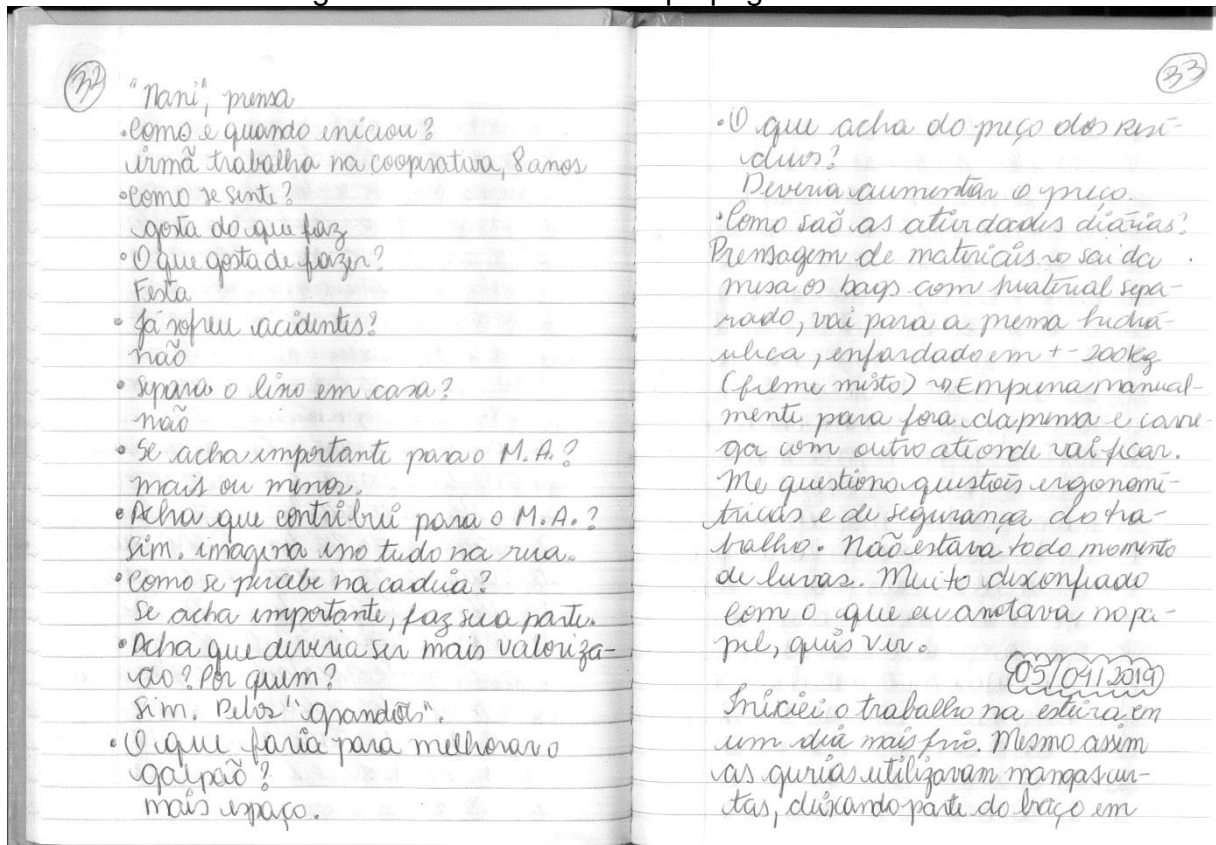 32
"Nani", prensa
• Como e quando iniciou?
irmã trabalha na cooperativa, 8 anos
• Como se sente?
gosta do que faz
• O que gosta de fazer?
Festa
• Já sofreu acidentes?
não
• Separa o lixo em casa?
não
• Se acha importante para o M.A.?
mais ou menos.
• Acha que contribui para o M.A.?
Sim, imagina isso tudo na rua.
• Como se percebe na cadeia?
Se acha importante, faz sua parte.
• Acha que deveria ser mais valoriza-
do? Por quem?
Sim. Pelos "grandões".
• O que faria para melhorar o
galpão?
mais espaço.
33
• O que acha do preço dos resí-
duos?
Deveria aumentar o preço.
• Como são as atividades diárias?
Prensagem de materiais → sai da
mesa os bags com material sepa-
rado, vai para a prensa hidrá-
ulica, enfardado em +- 200kg
(filme misto) → Empurra manual-
mente para fora da prensa e carre-
ga com outro até onde vai ficar.
Me questiono questões ergonomé-
tricas e de segurança do tra-
balho. Não estava todo momento
de luvas. Muito desconfiado
com o que eu anotava no pa-
pel, quis ver.
Iniciei o trabalho na esteira em
um dia mais frio. Mesmo assim
as gurias utilizavam mangas cur-
tas, deixando parte do braço em